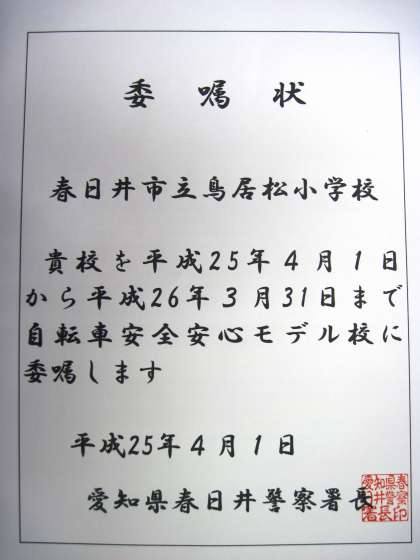 委嘱状
春日井市立鳥居松小学校
貴校を平成25年4月1日
から平成26年3月31日まで
自転車安全安心モデル校に
委嘱します
平成25年4月1日
愛知県春日井警察署長
愛知県春
日井警察
署長印